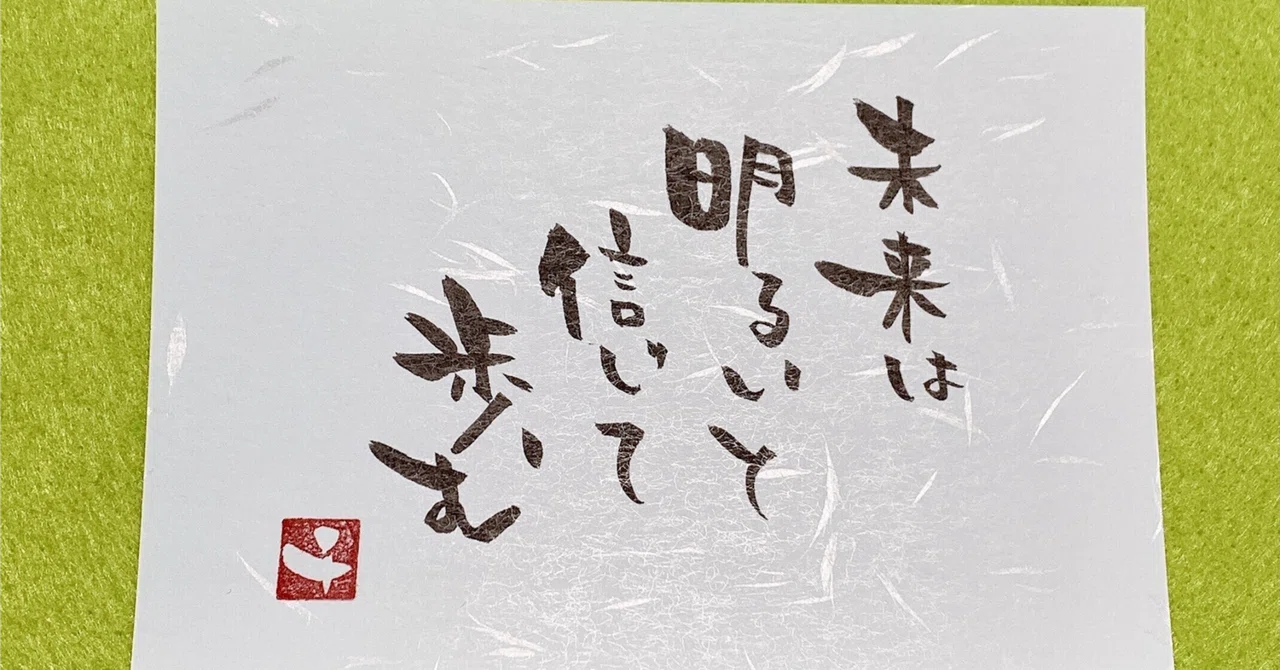 未来は
明るいと
信いて
歩む